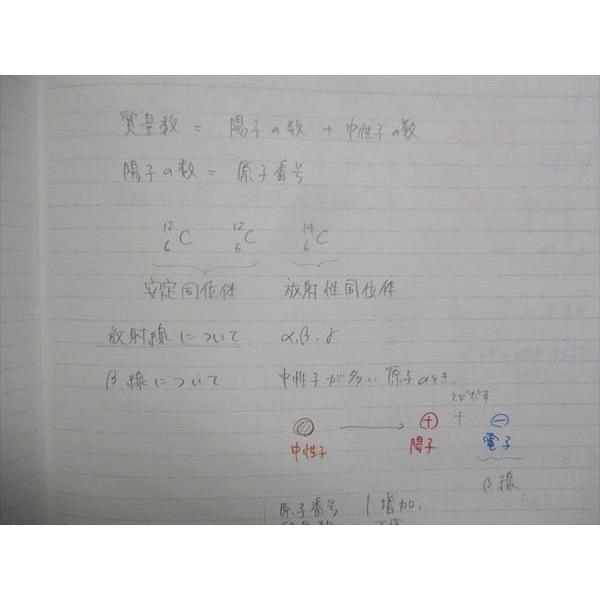 質量数 = 陽子の数 + 中性子の数
陽子の数 = 原子番号
¹²₆C ¹²₆C ¹⁴₆C
安定同位体 放射性同位体
放射線について α、β、γ
β線について 中性子が多い原子のとき、
とびだす
⊕ + ⊖
中性子 → 陽子 電子
β線
原子番号 1増加、